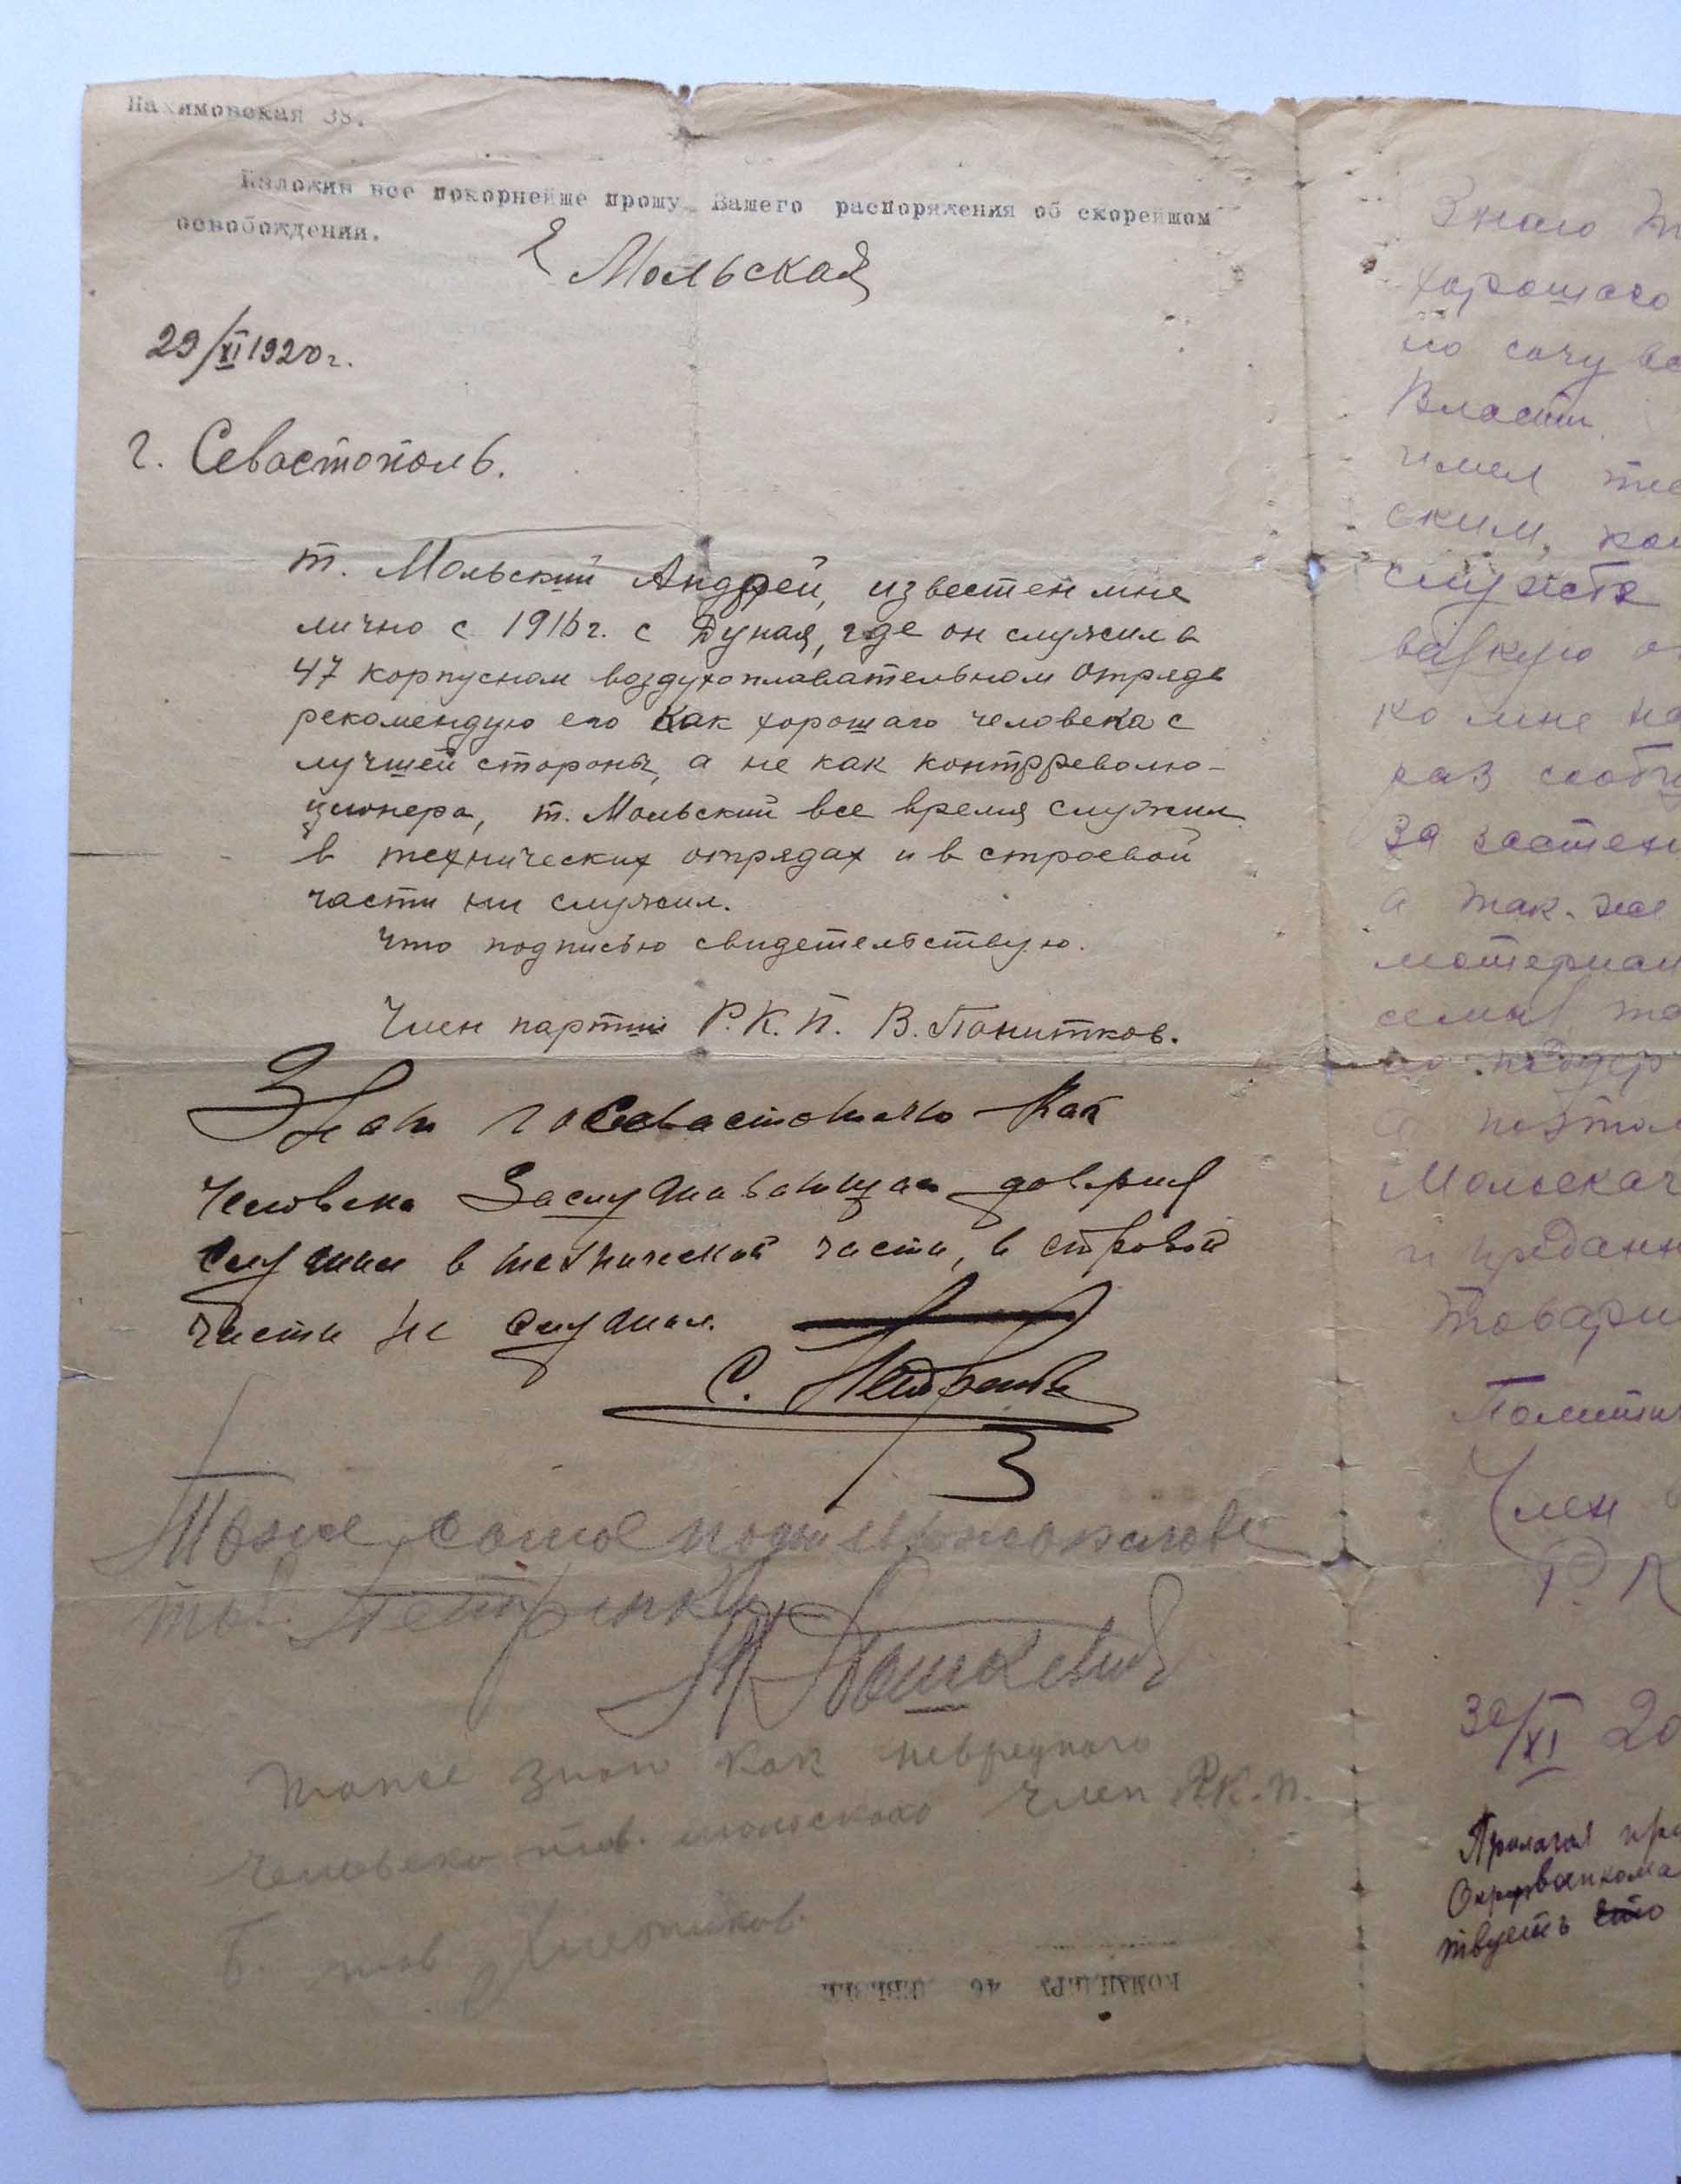 Нахимовская 38.
Изложив все покорнейше прошу Вашего распоряжения об скорейшом
освобождении.
Е Мольская
29/XI 1920 г.
г. Севастополь.
т. Мольский Андрей, известен мне
лично с 1916 г. с Дуная, где он служил в
47 корпусном воздухоплавательном отряде
рекомендую его как хорошаго человека с
лучшей стороны, а не как контрреволю-
ционера, т. Мольский все время служил
в технических отрядах и в строевой
части ни служил.
Что подписью свидетельствую.
Член партии Р.К.П. В. Понитков.
Знаю по Севастополю как
человека заслуживающаго доверия
служил в технической части, в строевой
части не служил.
С. Петренко
Тоже самое
тов. Петренко
Пашкевич
тоже знаю как невредного
человека тов. мольского член Р.К.П.
КОМАНДИРУ 46
Знаю
хорошаго
по сочу
Власти
имел
ским,
служба
ко мне
раз сообщ
за застен
а так-же
материал
семы
Мольскач
и предан
Товари
Полити
Член
Р. К
30/XI 20
Пролагая
Окрвоенкома
твует его